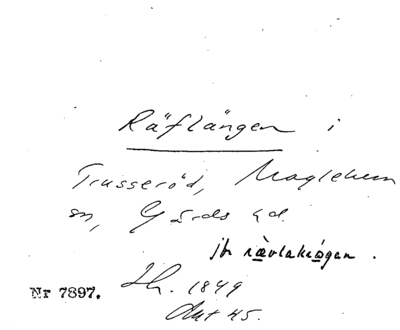 Räflängen i
Trusseröd, Maglehem
sn, Gärds hd.
jfr rävlakrogen.
Nr 7897. Lh. 1849
Akt 45.